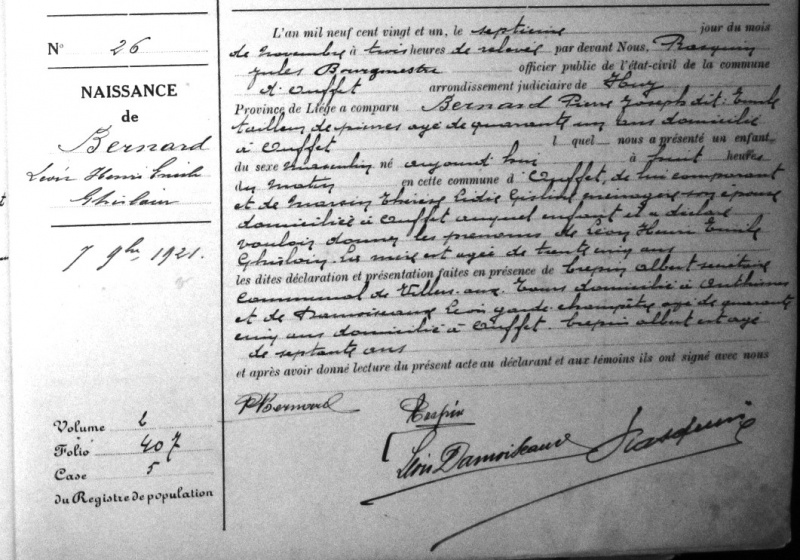 N° 26
NAISSANCE
de
Bernard
Léon Henri Emile
Ghislain
7 9bre 1921.
Volume 2
Folio 407
Case 5
du Registre de population
L'an mil neuf cent vingt et un, le septième jour du mois
de novembre à trois heures de relevée par devant Nous, Rasquin
Jules Bourgmestre officier public de l'état-civil de la commune
d'Ouffet arrondissement judiciaire de Huy
Province de Liége a comparu Bernard Pierre Joseph dit: Emile
tailleur de pierres agé de quarante un ans domicilié
à Ouffet l quel nous a présenté un enfant
du sexe masculin né aujourd'hui à huit heures
du matin en cette commune d'Ouffet, de lui comparant
et de Marsin Thérèse Lidie Gislène ménagère son épouse
domiciliée à Ouffet auquel enfant il a déclaré
vouloir donner les prénoms de Léon Henri Emile
Ghislain. La mère est agée de trente cinq ans
les dites déclaration et présentation faites en présence de Crepin Albert secrétaire
communal de Villers-aux-Tours domicilié à Anthisnes
et de Damoiseaux Léon garde-champêtre agé de quarante
cinq ans domicilié à Ouffet. Crepin Albert est agé
de septante ans
et après avoir donné lecture du présent acte au déclarant et aux témoins ils ont signé avec nous
PBernard
Crespin
Léon Damoiseaux Rasquin